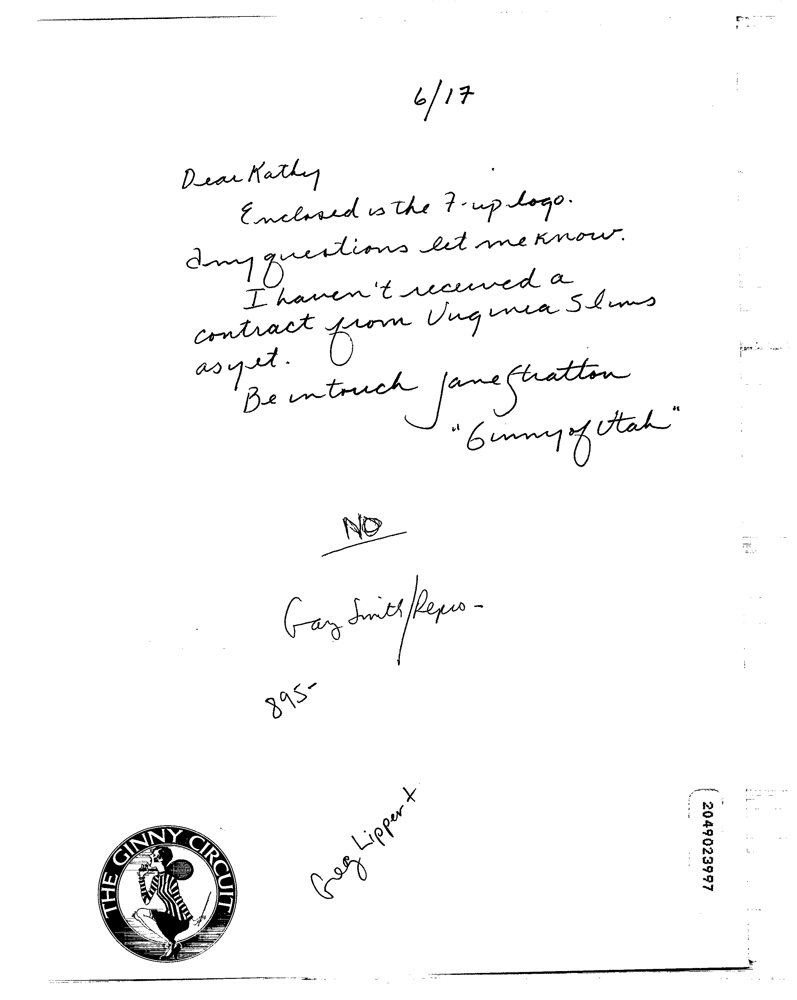 6/17
Dear Kathy
Enclosed is the 7-up logo.
Any questions let me know.
I haven't received a
contract from Virginia Slims
as yet.
Be in touch Jane Stratton
"Ginny of Utah"
NO
Gay Smith/Repro -
895-
Greg Lippert
THE GINNY CIRCUIT
2049023997